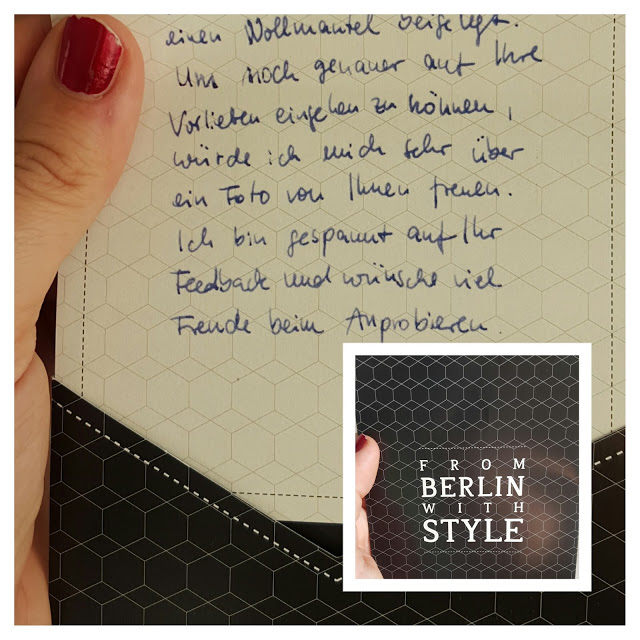 einen Wollmantel beigelegt.
Um noch genauer auf Ihre
Vorlieben eingehen zu können,
würde ich mich sehr über
ein Foto von Ihnen freuen.
Ich bin gespannt auf Ihr
Feedback und wünsche viel
Freude beim Anprobieren.
FROM
BERLIN
WITH
STYLE